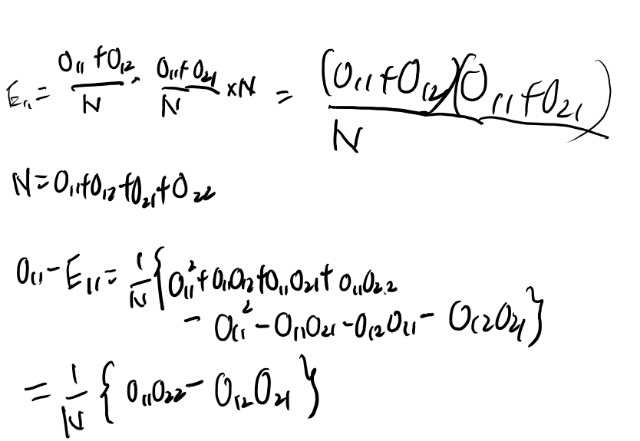 E₁₁ = (O₁₁+O₁₂)/N · (O₁₁+O₂₁)/N × N = (O₁₁+O₁₂)(O₁₁+O₂₁)/N
N = O₁₁+O₁₂+O₂₁+O₂₂
O₁₁ − E₁₁ = 1/N { O₁₁² + O₁₁O₁₂ + O₁₁O₂₁ + O₁₁O₂₂
− O₁₁² − O₁₁O₂₁ − O₁₂O₁₁ − O₁₂O₂₁ }
= 1/N { O₁₁O₂₂ − O₁₂O₂₁ }